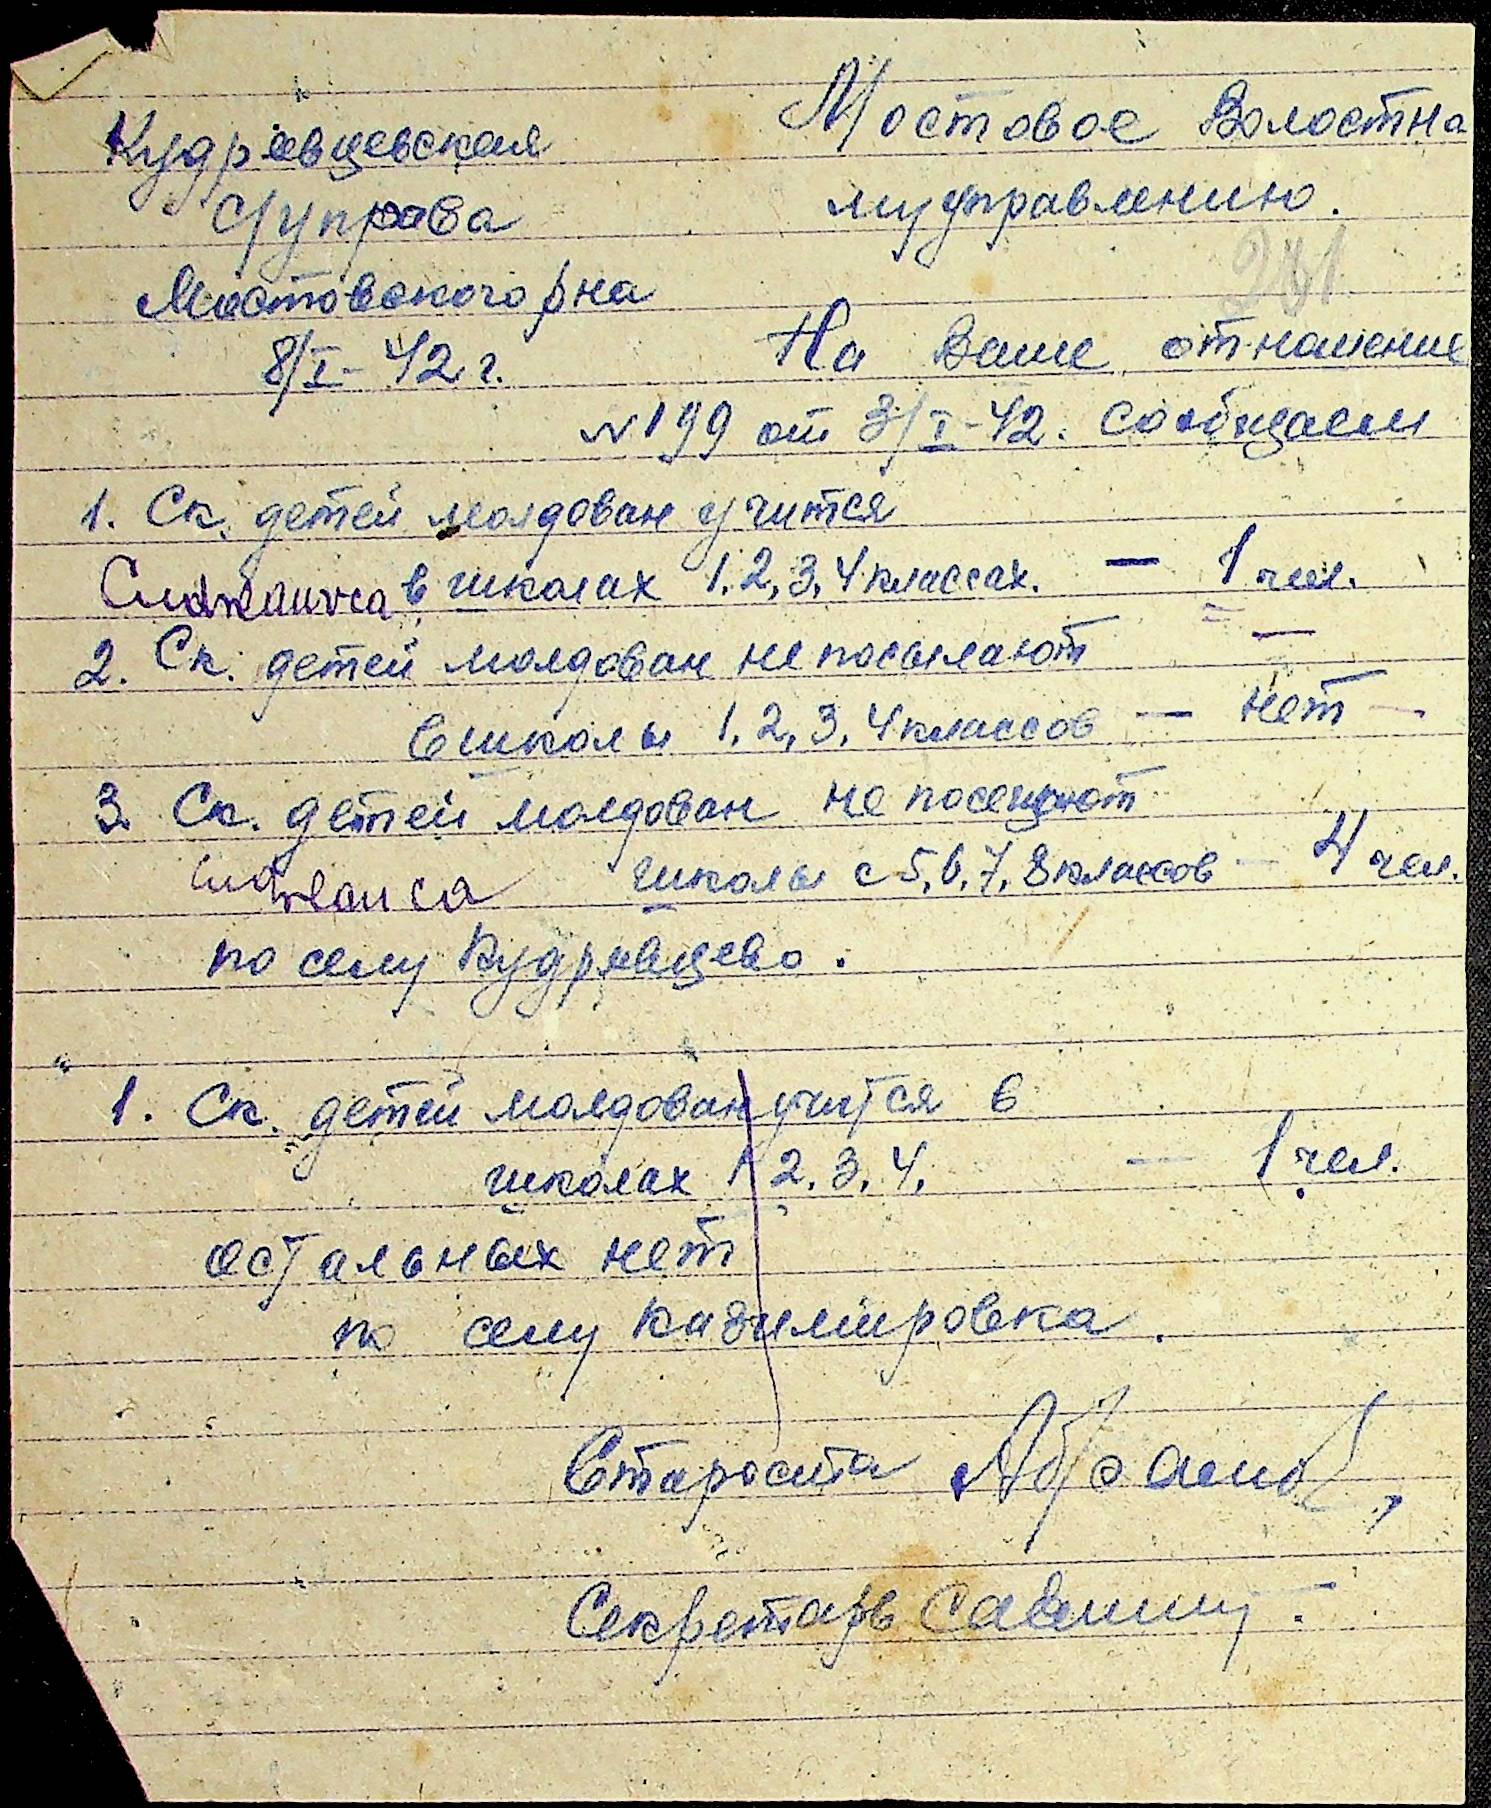 Кудрявцевская
с/управа
Мостовского р/на
8/I-42 г.
Мостовое Волостно
му управлению.
На Ваше отношение
№ 199 от 3/I-42. сообщаем
1. Ск. детей молдован учится
в школах 1.2,3,4 классах. — 1 чел.
2. Ск. детей молдован не посылают
в школы 1,2,3,4 классов — нет —
3. Ск. детей молдован не посещают
школы с 5,6,7,8 классов — 4 чел.
по селу Кудрявцево.
1. Ск. детей молдован учится в
школах 1 2.3.4. — 1 чел.
остальных нет
по селу Казимировка.
Староста
Секретарь